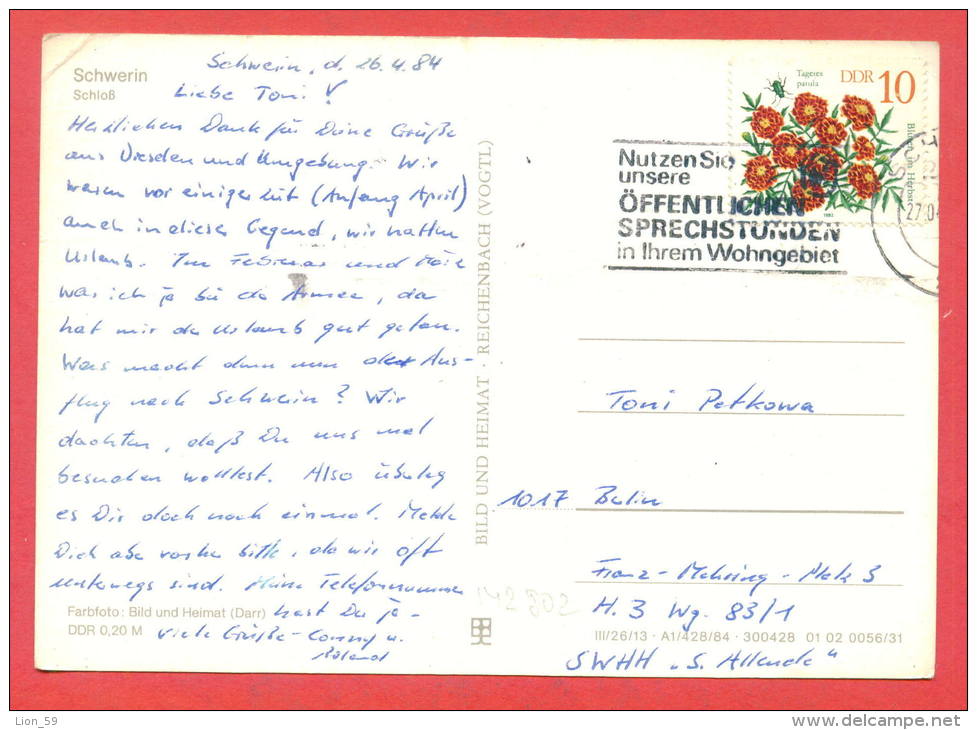 Schwerin
Schloß
Schwerin, d. 26.4.84
Liebe Toni!
Herzlichen Dank für Deine Grüße
aus Dresden und Umgebung. Wir
waren vor einiger Zeit (Anfang April)
auch in dieser Gegend, wir hatten
Urlaub. Im Februar und März
war ich ja bei der Armee, da
hat mir der Urlaub gut getan.
Was macht denn nun der Aus-
flug nach Schwerin? Wir
dachten, daß Du uns mal
besuchen wolltest. Also überleg
es Dir doch noch einmal. Melde
Dich aber vorher bitte, da wir oft
unterwegs sind. Meine Telefonnummer
hast Du ja -
viele Grüße - Conny u.
Roland
Farbfoto: Bild und Heimat (Darr)
DDR 0,20 M
BILD UND HEIMAT · REICHENBACH (VOGTL)
Tagetes
patula
DDR 10
1982
Nutzen Sie
unsere
ÖFFENTLICHEN
SPRECHSTUNDEN
in Ihrem Wohngebiet
27.04
Toni Petkowa
1017 Berlin
Franz-Mehring-Platz 3
H. 3 Wg. 83/1
SWHH "S. Allende"
142902
III/26/13 · A1/428/84 · 300428 01 02 0056/31
Lion_59
www.delcampe.net